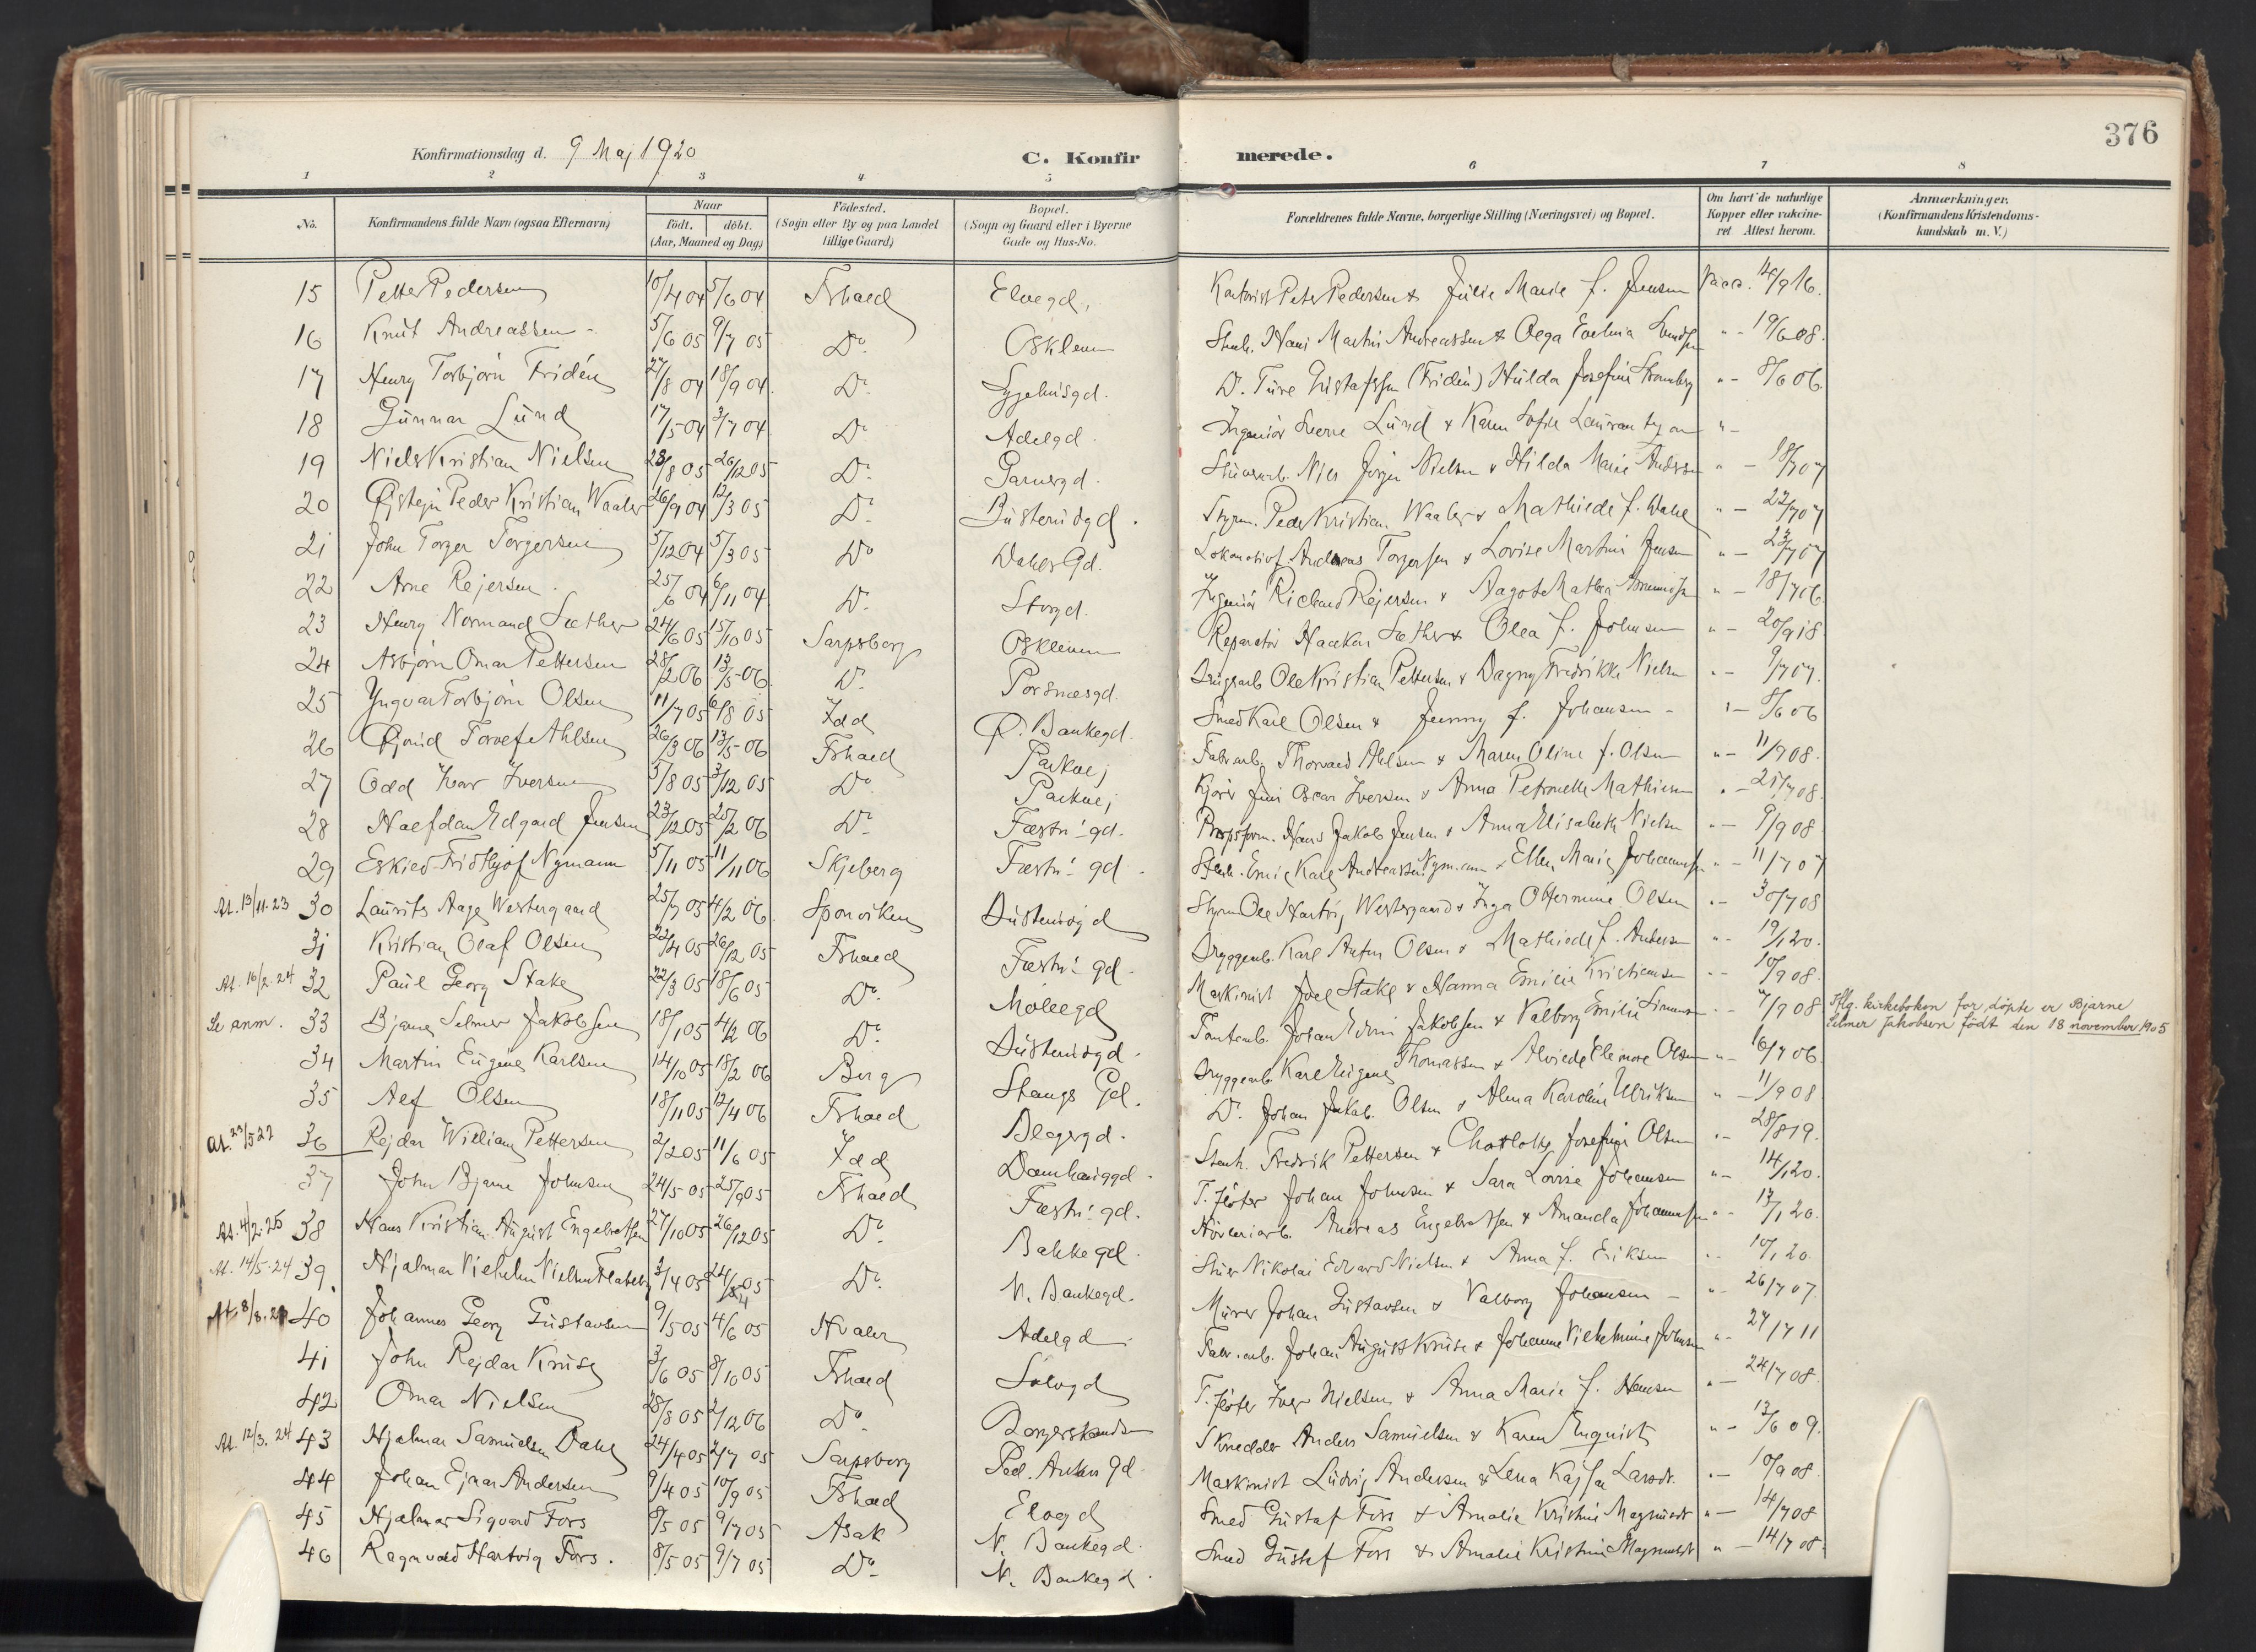 376
Konfirmationsdag d. 9 Maj 1920 C. Konfir merede.
1 2 3 4 5 6 7 8
No. Konfirmandens fulde Navn (ogsaa Efternavn) Naar födt. döbt. (Aar, Maaned og Dag) Födested. (Sogn eller By og paa Landet tillige Gaard) Bopæl. (Sogn og Gaard eller i Byerne Gade og Hus-No. Forældrenes fulde Navne, borgerlige Stilling (Næringsvei) og Bopæl. Om havt de naturlige Kopper eller vakcineret Attest herom. Anmærkninger. (Konfirmandens Kristendomskundskab m. V.)
15 Petter Pedersen 10/4 04 5/6 04 Frhald Elvegd. Kontorist Peter Pedersen & Julie Marie f. Jensen Vacc. 14/9 16.
16 Knut Andreassen 5/6 05 9/7 05 Do Oskleiven Stenh. Hans Martin Andreassen & Olga Evelina " - 19/6 08.
17 Henry Torbjörn Fridén 27/8 04 18/9 04 Do Sygehusgd. D. Ture Gustafssen (Fridén) Hulda Josefine Stromberg " - 8/6 06
18 Gunnar Lund 17/5 04 3/7 04 Do Adelgd. Ingeniör Sverre Lund & Karen Sofie " -
19 Niels Kristian Nielsen 23/8 05 26/12 05 Do Garvergd. Niels Jörgen Nielsen & Hilda Marie Andersen " - 18/7 07
20 Öjstejn Peder Kristian Waaler 26/9 04 12/3 05 Do Busterudgd. Styrm. Peder Kristian Waaler & Mathilde f. Wahl " - 22/7 07
21 John Torger Torgersen 5/12 04 5/3 05 Do Walkers Gd. Lokomotivf. Andreas Torgersen & Lovise Martine Jensen " - 23/7 07
22 Arne Rejersen 25/6 04 6/11 04 Do Storgd. Ingeniör Richard Rejersen & Aagot Mathea " - 18/7 06.
23 Henry Normand Sæther 24/6 05 15/10 05 Sarpsborg Oskleiven Reparatör Haakon Sæther & Olea f. Johnsen " - 20/9 18
24 Asbjörn Omar Pettersen 28/2 06 13/5 06 Do Porsnesgd. Ole Kristian Pettersen & Dagny Fredrikke Nielsen " - 9/7 07.
25 Yngvar Torbjörn Olsen 11/7 05 6/8 05 Idd Ö. Bankegd. Smed Karl Olsen & Jenny f. Johansen " - 8/6 06
26 Torolf Ahlsen 26/3 06 13/5 06 Frhald Parkvej Fabr.arb. Thorvald Ahlsen & Maren Oline f. Olsen " - 11/9 08.
27 Odd Ivar Iversen 5/8 05 3/12 05 Do Parkvej Oscar Iversen & Anna Petronelle Mathisen " - 21/7 08.
28 Halfdan Edgard Jensen 23/12 05 25/2 06 Do Fæstn. gd. Hans Jakob Jensen & Anna Elisabeth Nielsen " - 9/9 08
29 Eskild Fridthjof Nymann 5/11 05 11/11 06 Skjeberg Fæstn. gd. Stenh. Emil Karl Andreassen Nymann & Ellen Marie " - 11/7 07
At. 13/11.23 30 Laurits Aage Westergaard 25/7 05 4/2 06 Sponviken Busterudgd Styrm. Ole Hartvig Westergaard & Inga Ottermine Olsen " - 30/7 08
31 Kristian Olaf Olsen 22/4 05 26/12 05 Frhald Fæstn. gd. Bryggearb. Karl Anton Olsen & Mathilde f. Andersen " - 19/1 20.
At. 16/2.24 32 Paul Georg Stake 22/3 05 18/6 05 Do Möllegd Maskinist Joel Stake & Hanna Emilie Kristiansen " - 10/9 08.
Se anm. 33 Bjarne Selmer Jakobsen 18/1 05 4/2 06 Do Busterudgd. Johan Edvin Jakobsen & Valborg Emilie Simensen " - 7/9 08 Iflg. kirkeboken for döpte er Bjarne
Selmer Jakobsen födt den 18 november 1905
34 Martin Eugene Karlsen 14/10 05 18/2 06 Berg Stangs Gd. Bryggearb. Karl Eugene Thomassen & Alvilde Elenore Olsen " - 16/7 06.
35 Alf Olsen 18/11 05 12/4 06 Frhald Blegergd. Do. Johan Jakob Olsen & Alma Karoline Ulriksen " - 11/9 08.
At. 23/5 22 36 Rejdar William Pettersen 2/2 05 11/6 05 Idd Damhauggd. Stenh. Fredrik Pettersen & Charlotte Josefine Olsen " - 28/8 19.
37 John Bjarne Johnsen 24/5 05 25/9 05 Frhald Fæstn. gd. T. flöter Johan Johnsen & Sara Lovise Johansen " - 14/1 20.
At. 4/2.25 38 Hans Kristian August Engebretsen 27/10 05 26/12 05 Do Bakkegd. Hövleriarb. Andreas Engebretsen & Amanda Johannessen " - 13/1 20.
At. 14/5.24 39 Hjalmar Vilhelm Nielsen 3/4 05 24/4 05 Do N. Bankegd. Stuer Nikolai Edvard Nielsen & Anna f. Eriksen " - 10/1 20.
40 Johannes Georg Gustavsen 9/5 05 4/6 05 Hvaler Adelgd. Murer Johan Gustavsen & Valborg Johansen " - 26/7 07.
41 John Rejdar Kruse 3/6 05 8/10 05 Frhald Sölvgd Fabr.arb. Johan August Kruse & Johanne Vilhelmine Johnsen " - 27/7 11
42 Omar Nielsen 28/8 05 2/12 06 Do Borgerskansen T. flöter Iver Nielsen & Anna Marie f. Hansen " - 24/7 08.
At. 12/3.24 43 Hjalmar Samuelsen Dahl 24/4 05 2/7 05 Sarpsborg Ped. Ankers Gd. Skredder Anders Samuelsen & Karen Enquist " - 13/6 09.
44 Johan Ejnar Andersen 9/4 05 10/9 05 Frhald Elvegd Maskinist Ludvig Andersen & Lena Kajsa Larsdr. " - 10/9 08.
45 Hjalmar Sigvard Fors 8/5 05 9/7 05 Asak N. Bankegd. Smed Gustaf Fors & Amalie Kristine Magnusdr " - 14/7 08
46 Ragnvald Hartvig Fors. 8/5 05 9/7 05 Do N. Bankegd. Smed Gustaf Fors & Amalie Kristine Magnusdr " - 14/7 08.